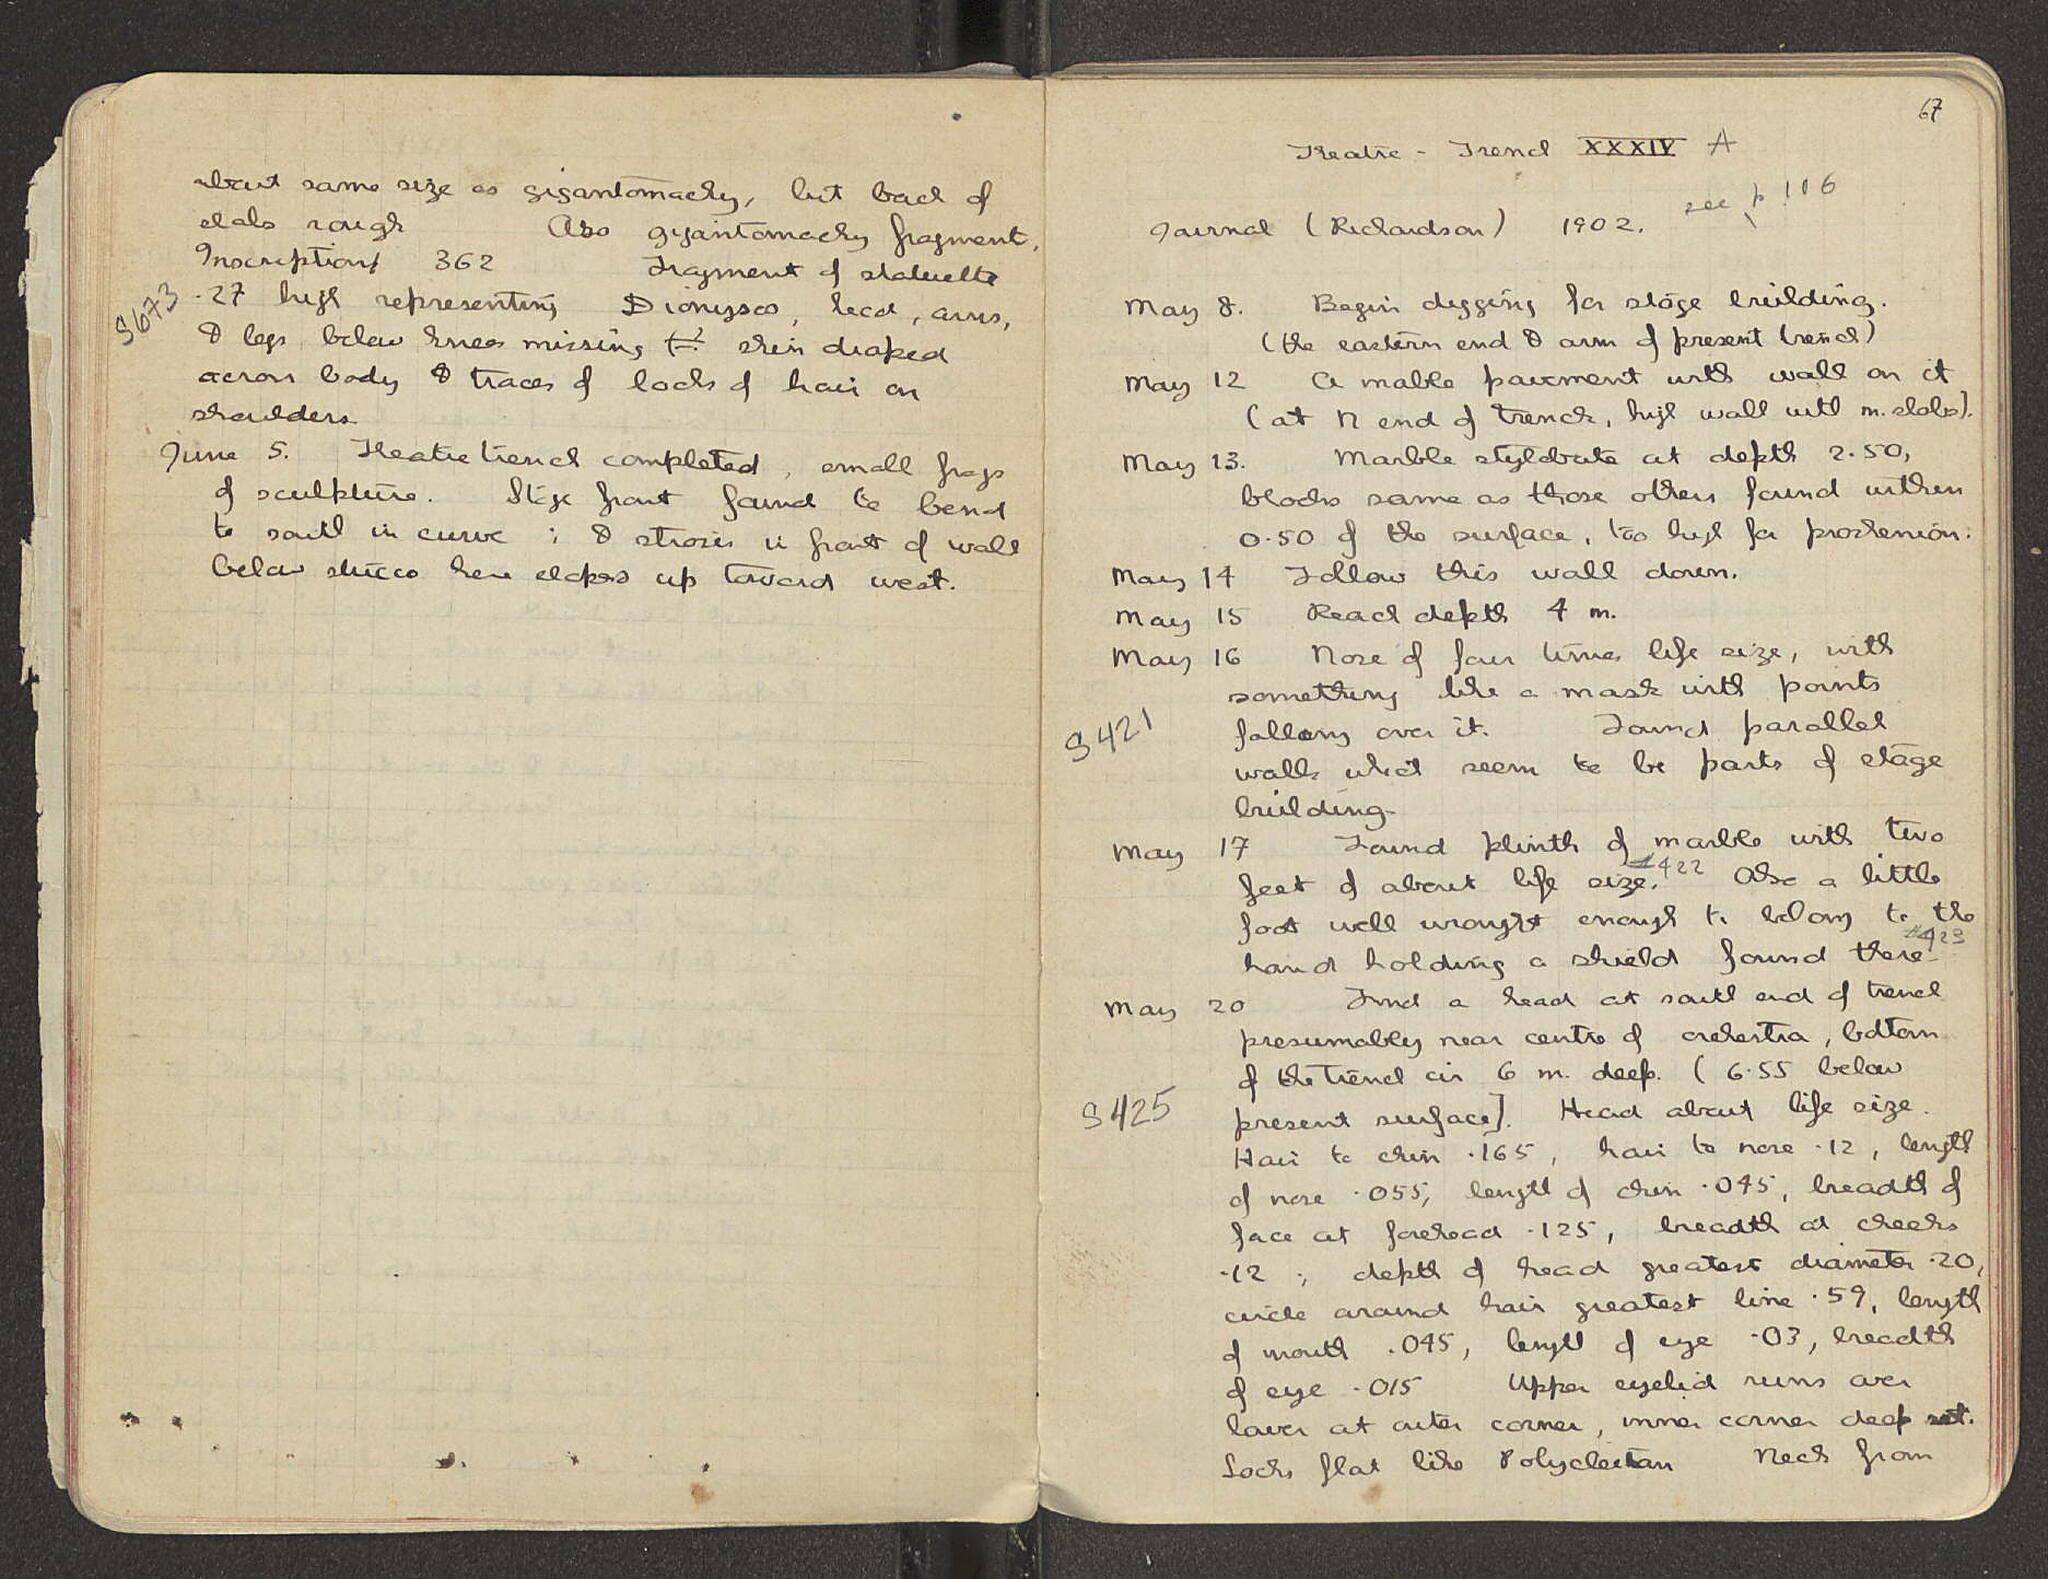 about same size as gigantomachy, but back of
slabs rough Also gigantomachy fragment.
Inscription 362 Fragment of statuette
S673
.27 high representing Dionysos, head, arms,
& legs below knees missing skin draped
across body & traces of locks of hair on
shoulders
June 5. Theatre trench completed, small frags
of sculpture. Stage front found to bend
to south in curve ; & strosis in front of wall
below stucco here slopes up toward west.
67
Theatre - Trench XXXIV A
see p 106
Journal (Richardson) 1902.
May 8. Begin digging for stage building.
(the eastern end & arm of present trench)
May 12 A marble pavement with wall on it
(at N end of trench, high wall with m. slabs).
May 13. Marble stylobate at depth 2.50,
blocks same as those others found within
0.50 of the surface, too high for proskenion.
May 14 Follow this wall down.
May 15 Reach depth 4 m.
May 16 Nose of four times life size, with
something like a mask with points
S421
falling over it. Found parallel
walls which seem to be parts of stage
building.
May 17 Found plinth of marble with two
feet of about life size. #422 Also a little
foot well wrought enough to belong to the
hand holding a shield found there #423
May 20 Find a head at south end of trench
presumably near centre of orchestra, bottom
of the trench cir 6 m. deep. (6.55 below
S425
present surface]. Head about life size.
Hair to chin .165, hair to nose .12, length
of nose .055, length of chin .045, breadth of
face at forehead .125, breadth at cheeks
.12 ; depth of head greatest diameter .20,
circle around hair greatest line .59, length
of mouth .045, length of eye .03, breadth
of eye .015 Upper eyelid runs over
lower at outer corner, inner corner deep set.
Locks flat like Polycleitan Neck from